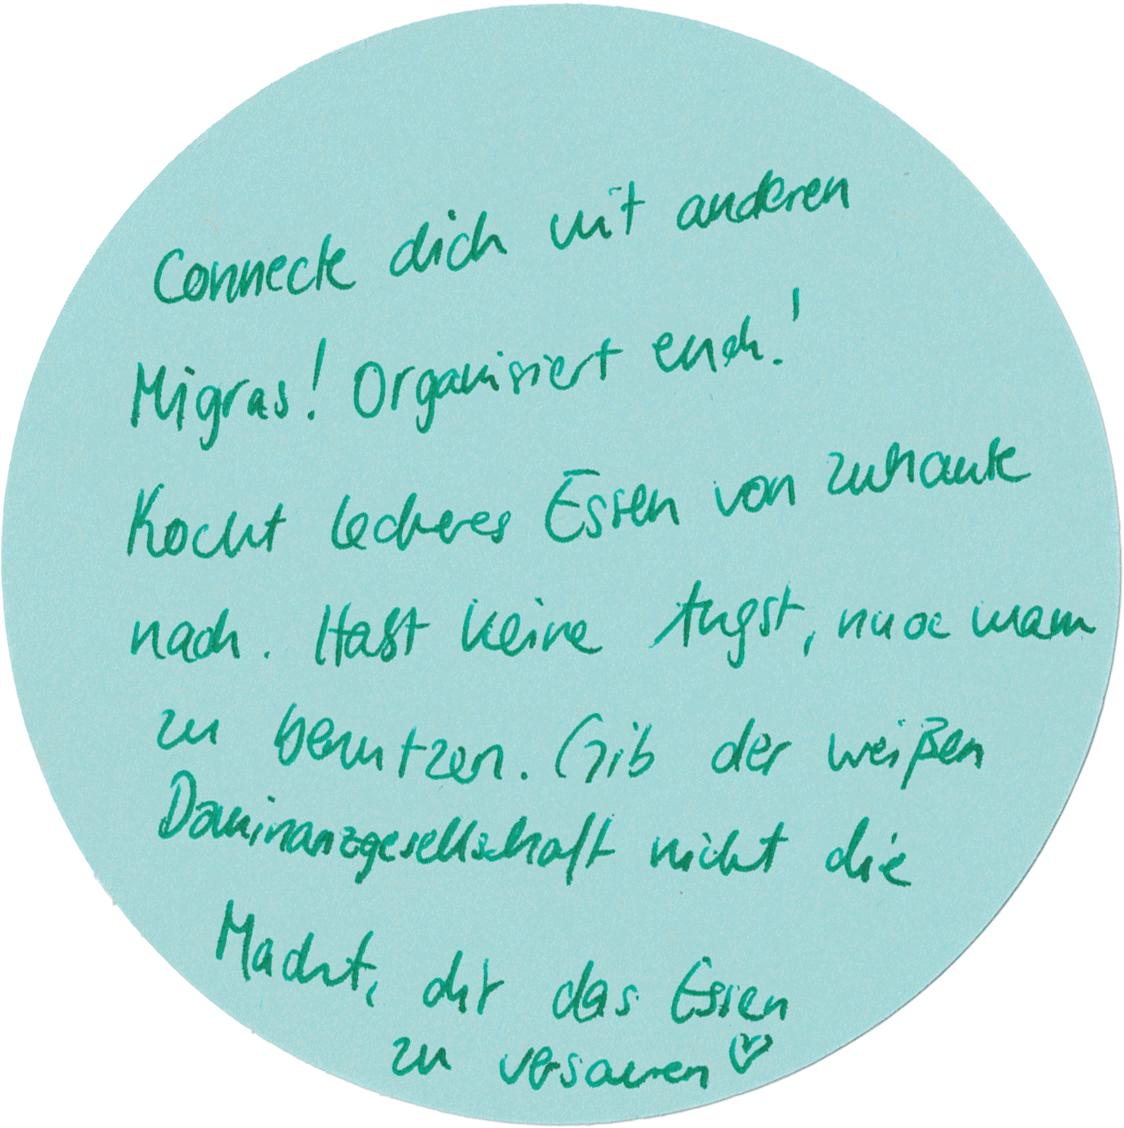 Connecte dich mit anderen
Migras! Organisiert euch!
Kocht leckeres Essen von zuhause
nach. Habt keine Angst, nuoc mam
zu benutzen. Gib der weißen
Dominanzgesellschaft nicht die
Macht, dir das Essen
zu versauen ♡